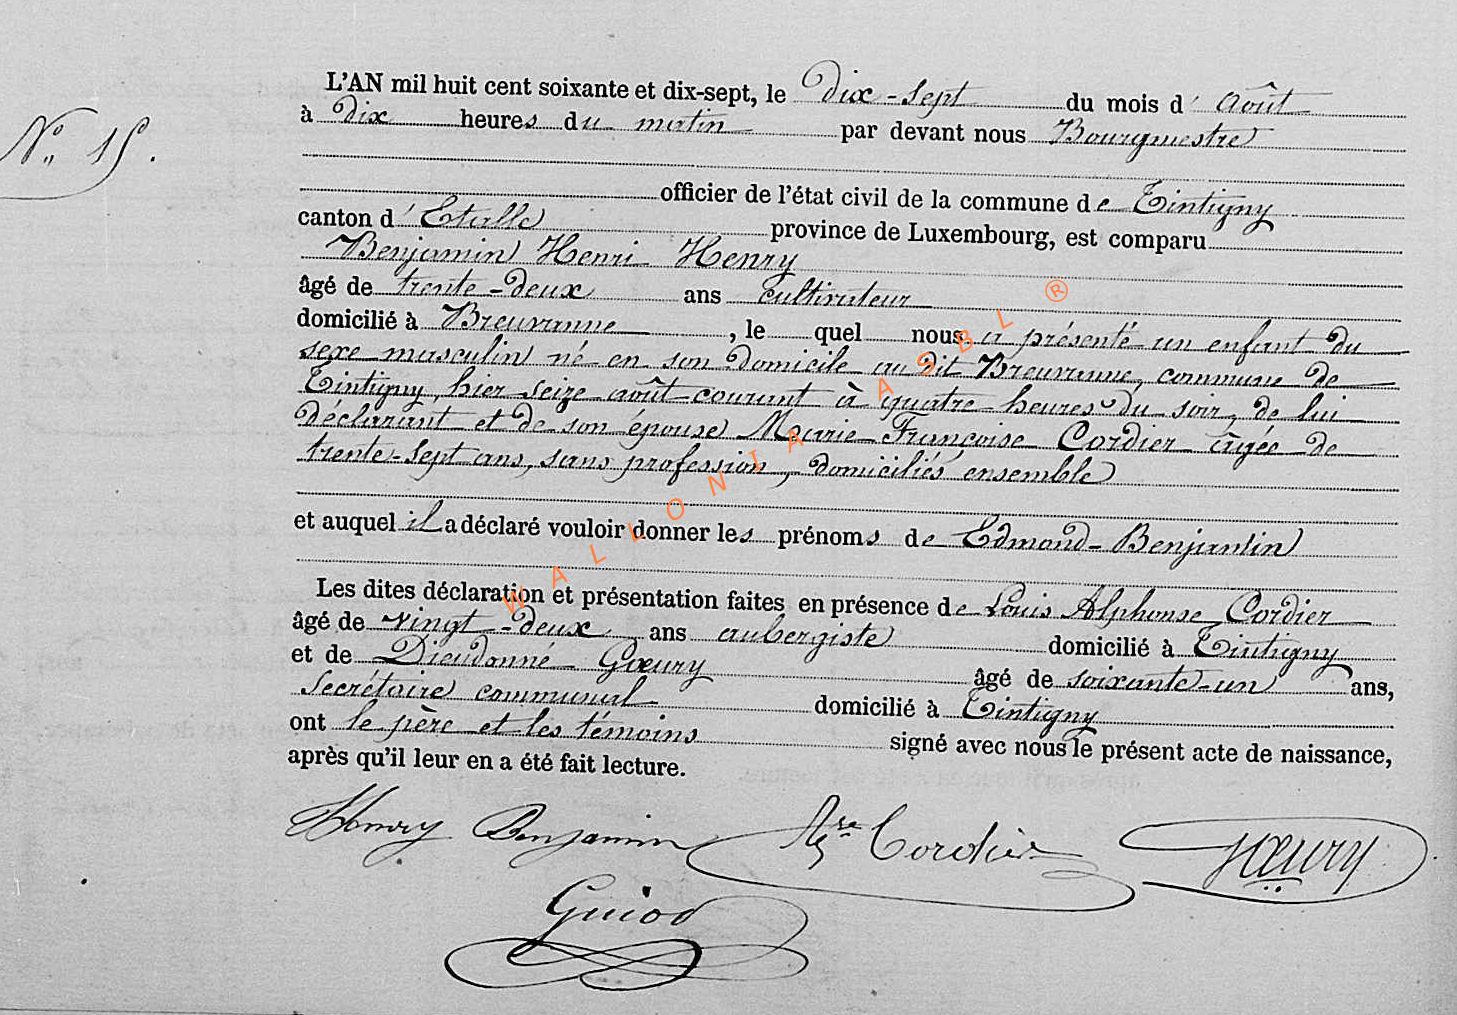 L'AN mil huit cent soixante et dix-sept, le dix-sept du mois d'août
N° 15.
à dix heures du matin par devant nous Bourgmestre
officier de l'état civil de la commune de Tintigny
canton d'Etalle province de Luxembourg, est comparu
Benjamin Henri Henry
âgé de trente-deux ans cultivateur
domicilié à Breuvanne, le quel nous a présenté un enfant du
sexe masculin né en son domicile au dit Breuvanne, commune de
Tintigny, hier seize août courant à quatre heures du soir, de lui
déclarant et de son épouse Marie Françoise Cordier âgée de
trente-sept ans, sans profession, domiciliés ensemble
et auquel il a déclaré vouloir donner les prénoms de Edmond-Benjamin
Les dites déclaration et présentation faites en présence de Louis Alphonse Cordier
âgé de vingt-deux ans aubergiste domicilié à Tintigny
et de Dieudonné Gœury âgé de soixante-un ans,
Secrétaire communal domicilié à Tintigny
ont le père et les témoins signé avec nous le présent acte de naissance,
après qu'il leur en a été fait lecture.
Henry Benjamin Alse Cordier Gœury
Guiod
WALLONIA ASBL ®